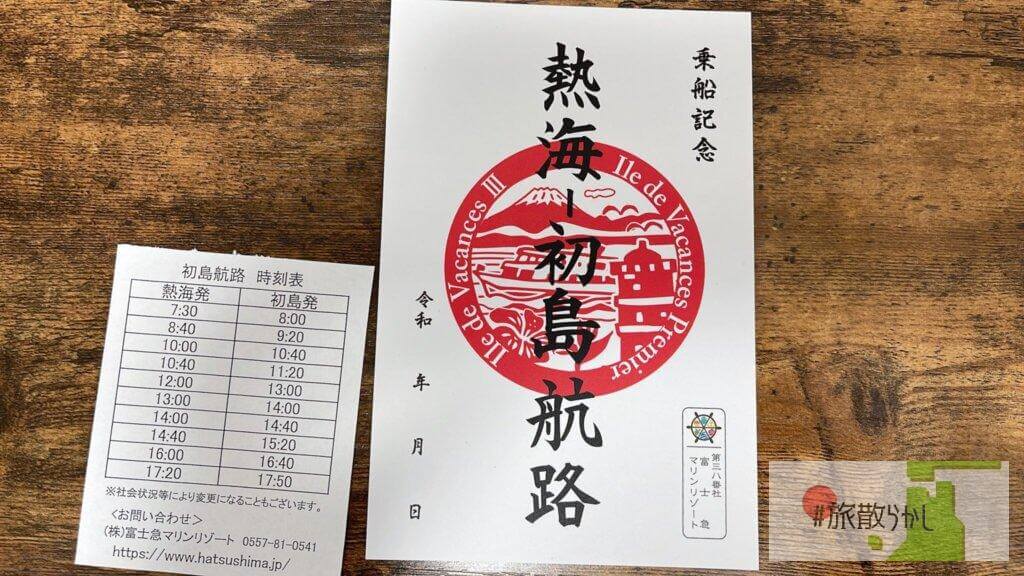 乗船記念
熱海-初島航路
Ile de Vacances III
Ile de Vacances Premier
令和 年 月 日
第三八番社
富士急
マリンリゾート
初島航路 時刻表
熱海発 初島発
7:30 8:00
8:40 9:20
10:00 10:40
10:40 11:20
12:00 13:00
13:00 14:00
14:00 14:40
14:40 15:20
16:00 16:40
17:20 17:50
※社会状況等により変更になることもございます。
<お問い合わせ>
(株)富士急マリンリゾート 0557-81-0541
https://www.hatsushima.jp/
#旅散らかし